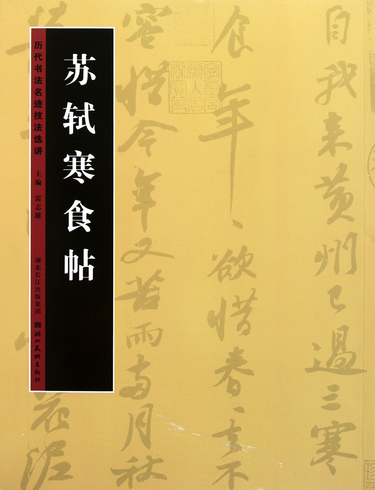 苏轼寒食帖
历代书法名迹技法选讲
主编 雷志雄
湖北长江出版集团
湖北美术出版社
自我来黄州已过三寒
食年〻欲惜春〻去不
容惜今年又苦雨两月秋
花泥